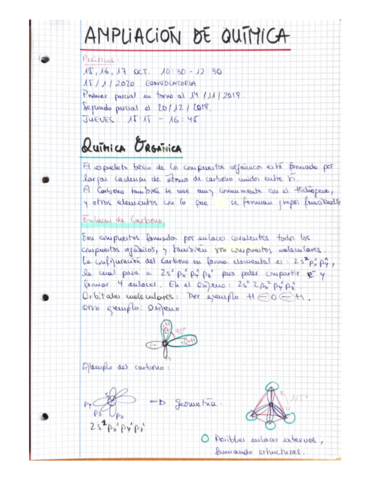 AMPLIACIÓN DE QUÍMICA
Prácticas:
15, 16, 17 OCT. 10:30 - 12:30
15/1/2020 CONVOCATORIA
Primer parcial en torno al 14/11/2019
Segundo parcial el 20/12/2019.
JUEVES 15:15 - 16:45
QUÍMICA ORGÁNICA
El esqueleto básico de los compuestos orgánicos está formado por
largas cadenas de átomos de carbono unidos entre sí.
El Carbono también se une muy comunmente con el Hidrógeno,
y otros elementos con lo que se forman grupos funcionales
Enlaces de Carbono
Son compuestos formados por enlaces covalentes todos los
compuestos orgánicos, y también son compuestos moleculares.
La configuración del carbono en forma elemental es: 2s² px¹ py¹,
la cual pasa a 2s¹ px¹ py¹ pz¹ para poder compartir e⁻ y
formar 4 enlaces. En el Oxígeno: 2s² 2px² py¹ pz¹
Orbitales moleculares: Por ejemplo H-O-H.
Otro ejemplo: Oxígeno
Ejemplo del carbono:
Geometría:
Posibles enlaces externos,
formando estructuras.